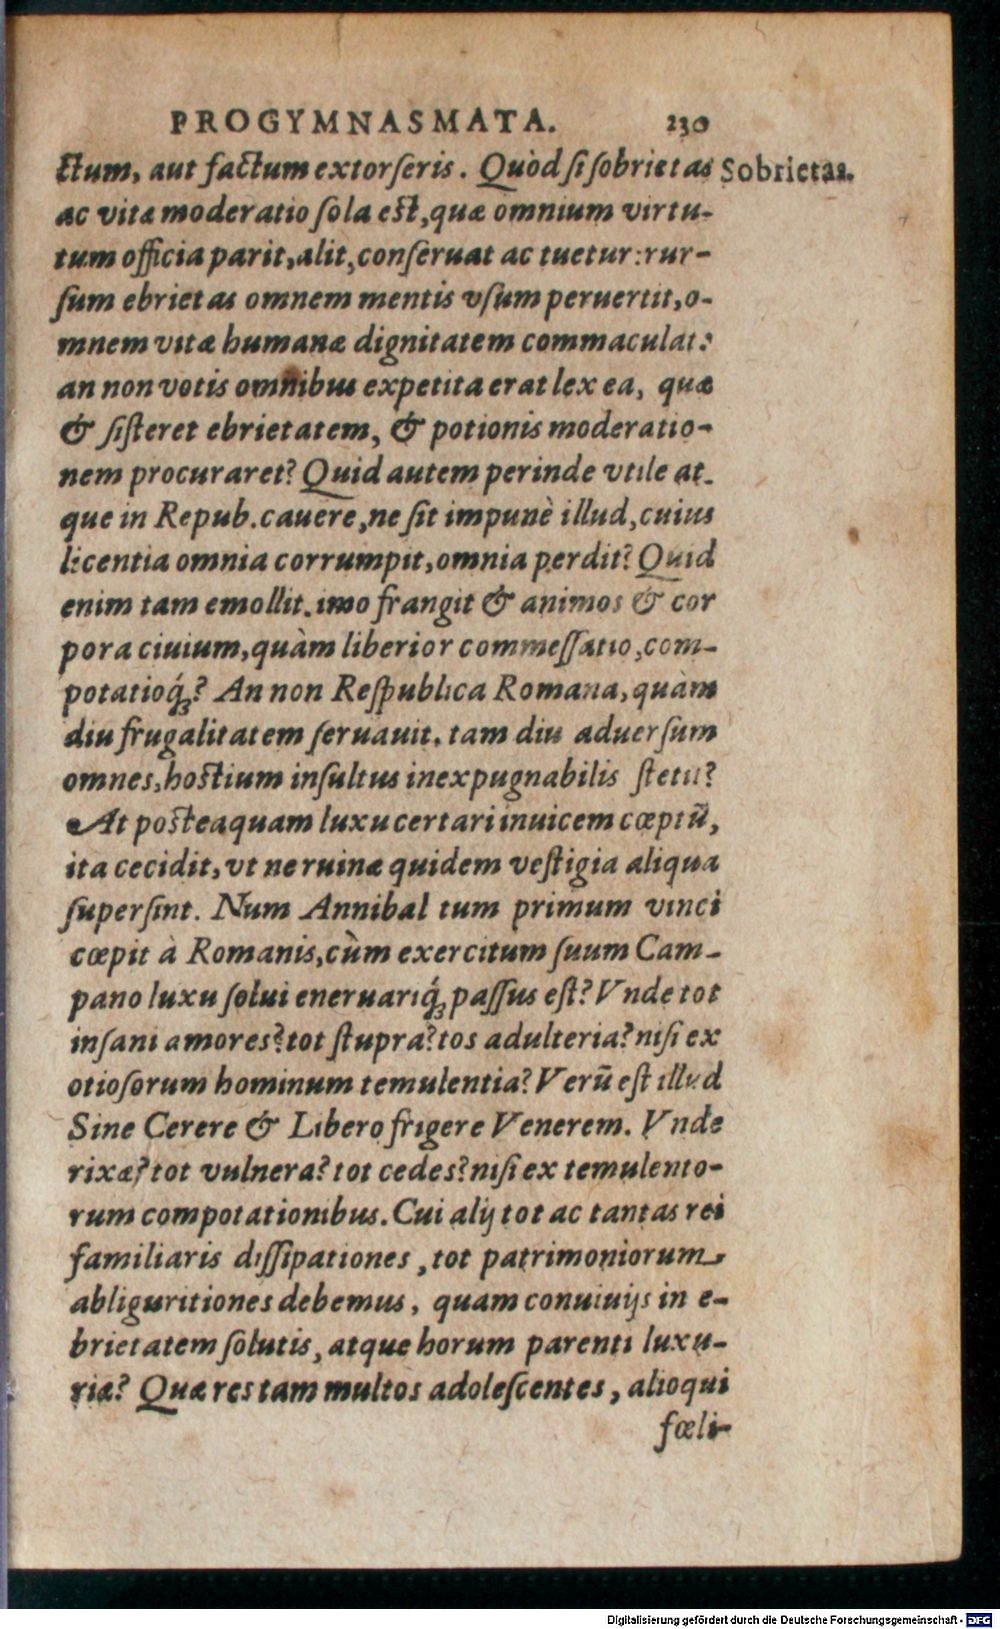 PROGYMNASMATA. 230
ctum, aut factum extorſeris. Quòd ſi ſobrietas Sobrietas.
ac vitæ moderatio ſola eſt, quæ omnium virtu-
tum officia parit, alit, conſeruat ac tuetur: rur-
ſum ebrietas omnem mentis vſum peruertit, o-
mnem vitæ humanæ dignitatem commaculat:
an non votis omnibus expetita erat lex ea, quæ
& ſiſteret ebrietatem, & potionis moderatio-
nem procuraret? Quid autem perinde vtile at-
que in Repub. cauere, ne ſit impunè illud, cuius
licentia omnia corrumpit, omnia perdit? Quid
enim tam emollit, imo frangit & animos & cor
pora ciuium, quàm liberior commeſſatio, com-
potatioq́;? An non Reſpublica Romana, quàm
diu frugalitatem ſeruauit, tam diu aduerſum
omnes, hoſtium inſultus inexpugnabilis ſtetit?
At poſteaquam luxu certari inuicem cœptũ,
ita cecidit, vt ne ruinæ quidem veſtigia aliqua
superſint. Num Annibal tum primum vinci
cœpit à Romanis, cùm exercitum ſuum Cam-
pano luxu ſolui eneruariq́; paſſus eſt? Vnde tot
inſani amores? tot ſtupra? tos adulteria? niſi ex
otioſorum hominum temulentia? Verũ eſt illud
Sine Cerere & Libero frigere Venerem. Vnde
rixæ? tot vulnera? tot cedes? niſi ex temulento-
rum compotationibus. Cui alij tot ac tantas rei
familiaris diſſipationes, tot patrimoniorum
abliguritiones debemus, quam conuiuijs in e-
brietatem ſolutis, atque horum parenti luxu-
riæ? Quæ res tam multos adoleſcentes, alioqui
fœli-
Digitalisierung gefördert durch die Deutsche Forschungsgemeinschaft - DFG